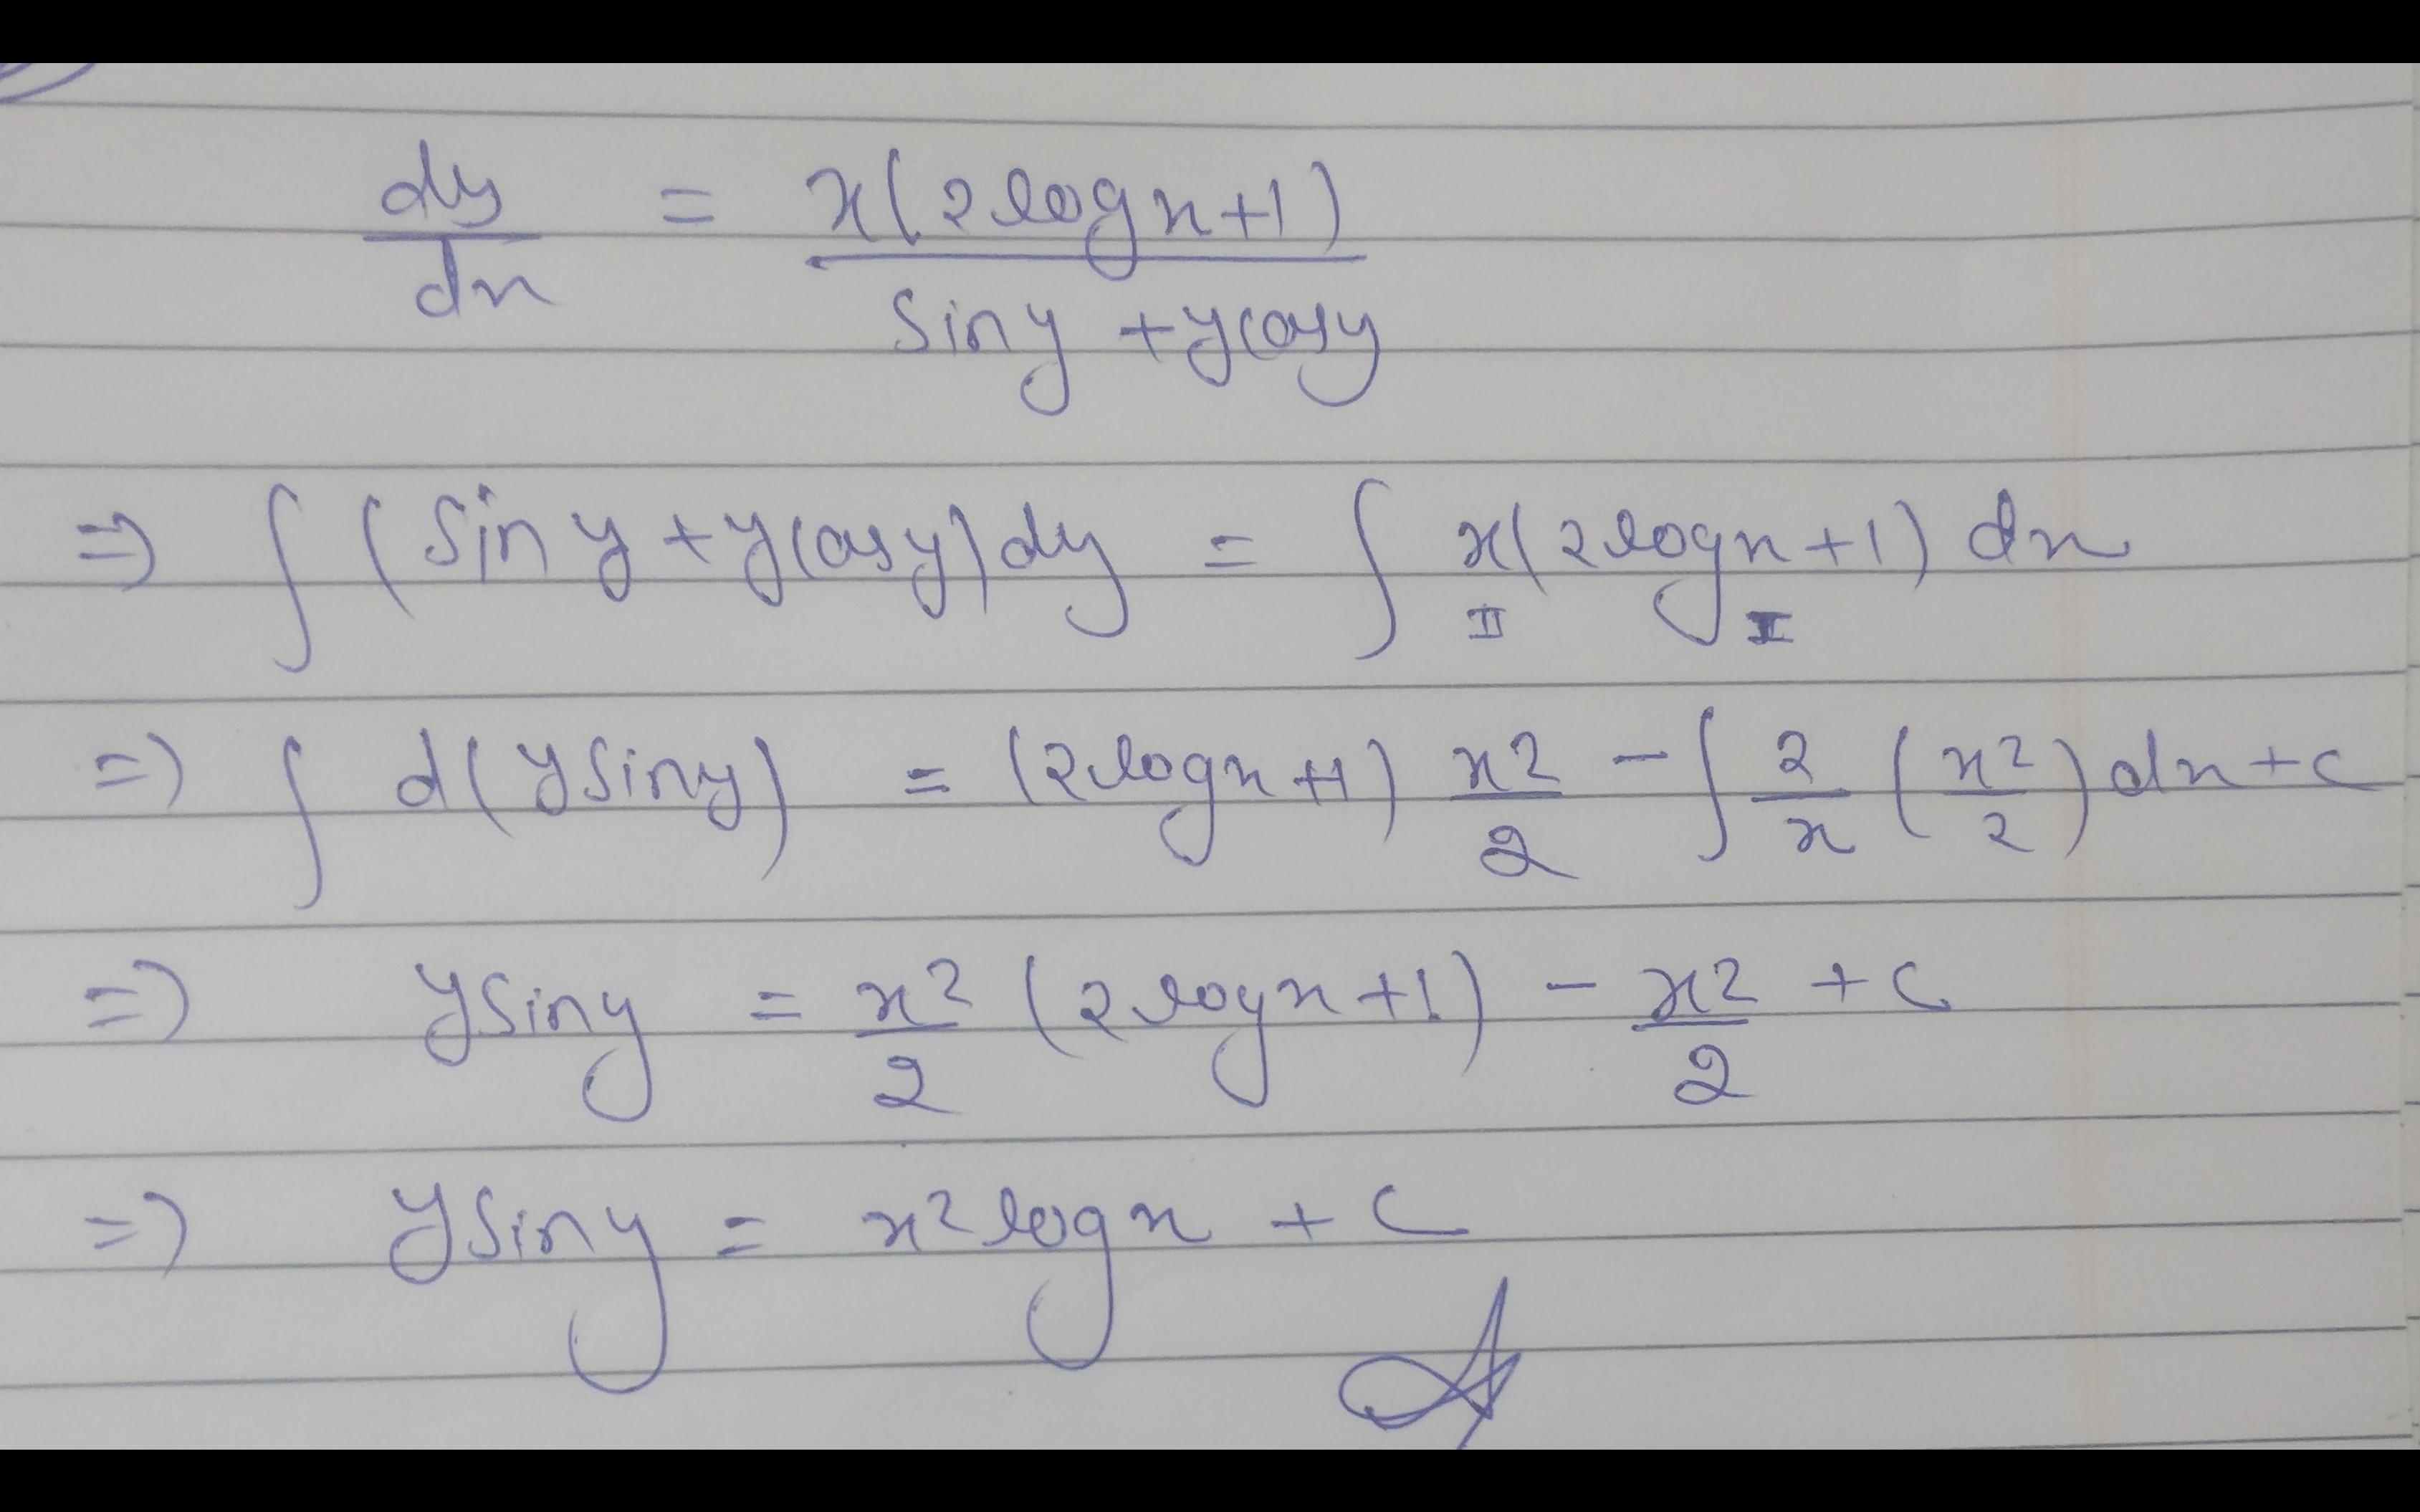 dy/dx = x(2logx+1)/(siny + ycosy)
⇒ ∫ (siny + ycosy)dy = ∫ x(2logx+1) dx
II I
⇒ ∫ d(ysiny) = (2logx+1) x²/2 - ∫ 2/x (x²/2) dx + c
⇒ ysiny = x²/2 (2logx+1) - x²/2 + c
⇒ ysiny = x²logx + c